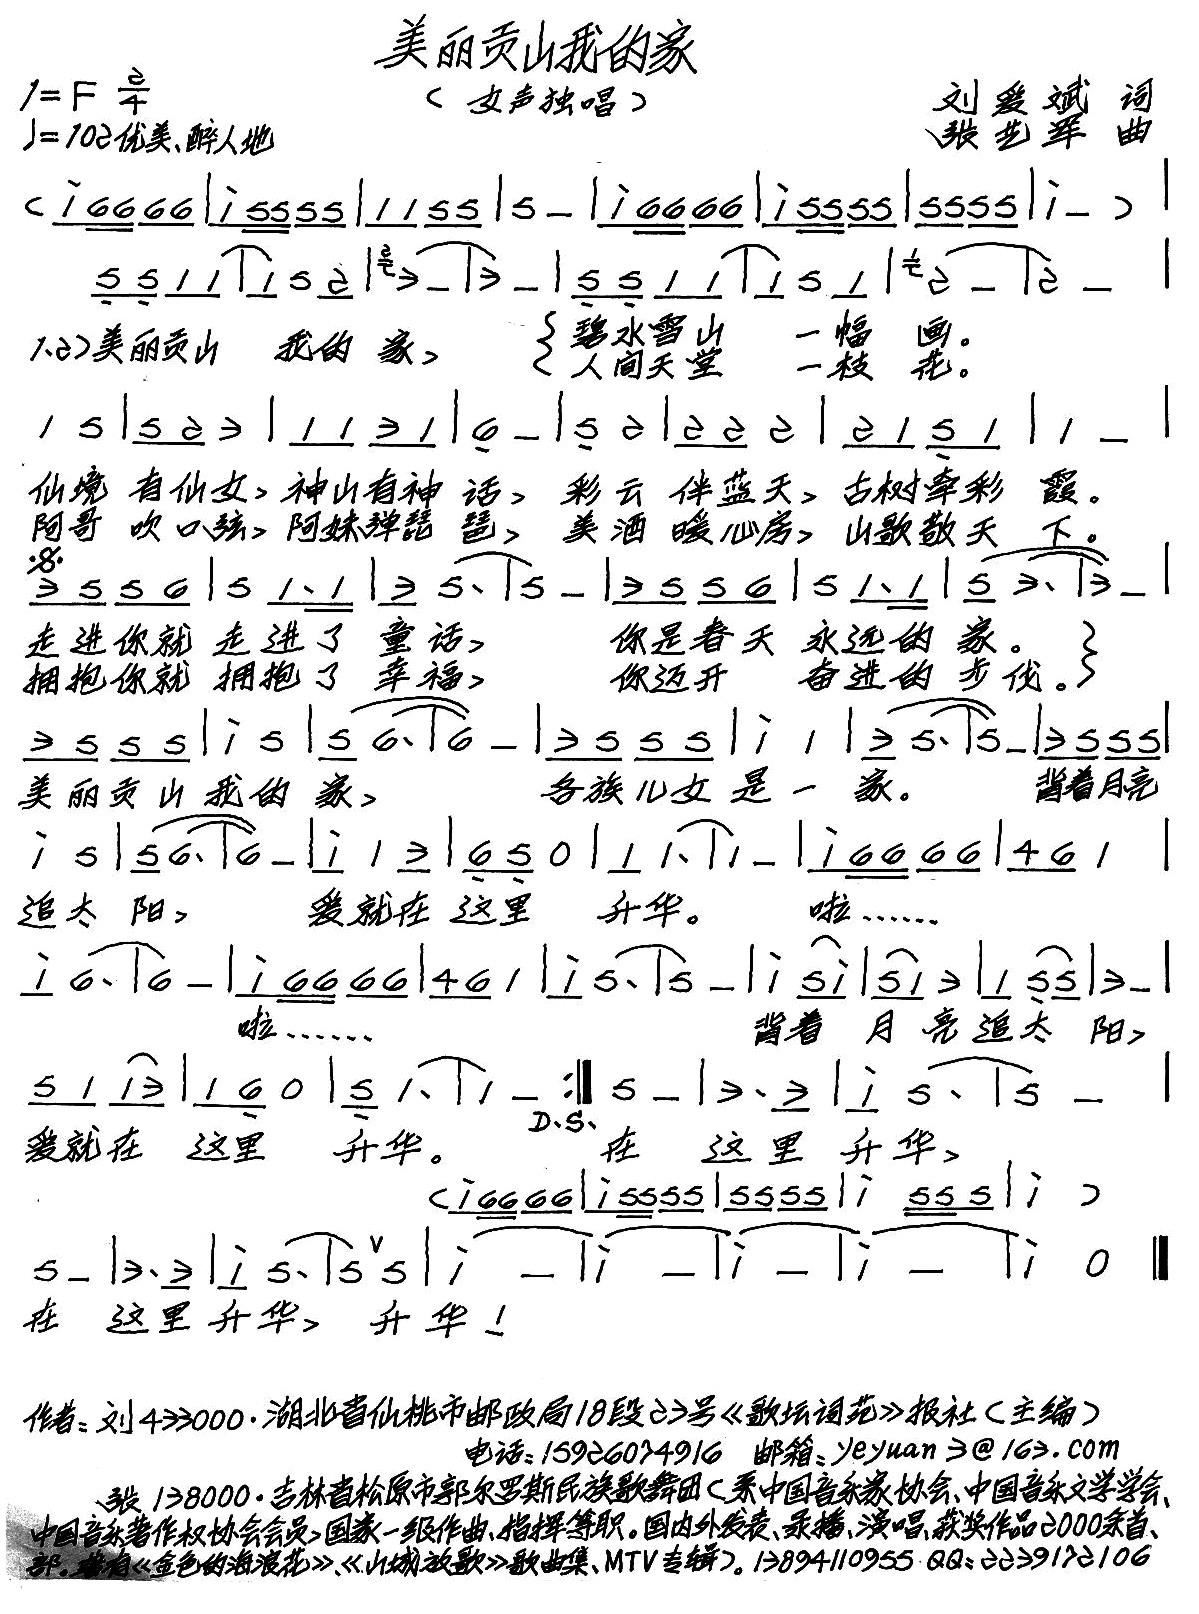 美丽贡山我的家
1=F 2/4
（女声独唱）
刘爱斌 词
♩=102优美、醉人地
张艺军 曲
( i6666 | i5555 | 1155 | 5 – | i6666 | i5555 | 5555 | i – ) |
5511 | 1 5 2 | 3 – | 3 – | 5511 | 1 5 1 | 2 – | 2 – |
1.2)美丽贡山 我的 家、 碧水雪山 一幅 画。
人间天堂 一枝 花。
1 5 | 5 2 3 | 1 1 3 1 | 6 – | 5 2 | 2 2 2 | 2 1 5 1 | 1 – |
仙境 有仙女、神山有神 话、 彩云 伴蓝天、古树牵彩 霞。
阿哥 吹口弦、阿妹弹琵 琶、 美酒 暖心房、山歌敬天 下。
3 5 5 6 | 5 1. 1 | 3 5. | 5 – | 3 5 5 6 | 5 1. 1 | 5 3. | 3 – |
走进你就 走进了 童话、 你是春天 永远的 家。
拥抱你就 拥抱了 幸福、 你迈开 奋进的 步伐。
3 5 5 5 | i 5 | 5 6. | 6 – | 3 5 5 5 | i 1 | 3 5. | 5 – | 3 5 5 5 |
美丽贡山 我的 家、 各族儿女 是一 家。 背着月亮
i 5 | 5 6. | 6 – | i 1 3 | 6 5 0 | 1 1. | 1 – | i6666 | 4 6 1 |
追太 阳、 爱就在 这里 升华。 啦……
i 6. | 6 – | i6666 | 4 6 1 | i 5. | 5 – | i 5i | 5i 3 | 1 5 5 | 3 – |
啦…… 背着 月亮追太 阳、
5 1 i3 | 1 6 0 | 5 1. | 1 – :‖ 5 – | 3. 3 | i 5. | 5 – |
D.S.
爱就在 这里 升华。 在 这里 升华、
( i6666 | i5555 | 5555 | i 555 | i )
5 – | 3. 3 | i 5. | 5 ∨ 5 | i – | i – | i – | i – | i 0 ‖
在 这里 升华、 升华！
作者：刘433000·湖北省仙桃市邮政局18段23号《歌坛词苑》报社（主编）
电话：15926074916 邮箱：yeyuan3@163.com
张138000·吉林省松原市郭尔罗斯民族歌舞团（系中国音乐家协会、中国音乐文学学会、
中国音乐著作权协会会员、国家一级作曲、指挥等职。国内外发表、录播、演唱、获奖作品2000余首、
部。著有《金色的海浪花》、《山城放歌》歌曲集、MTV专辑）。13894110955 QQ：2239172106